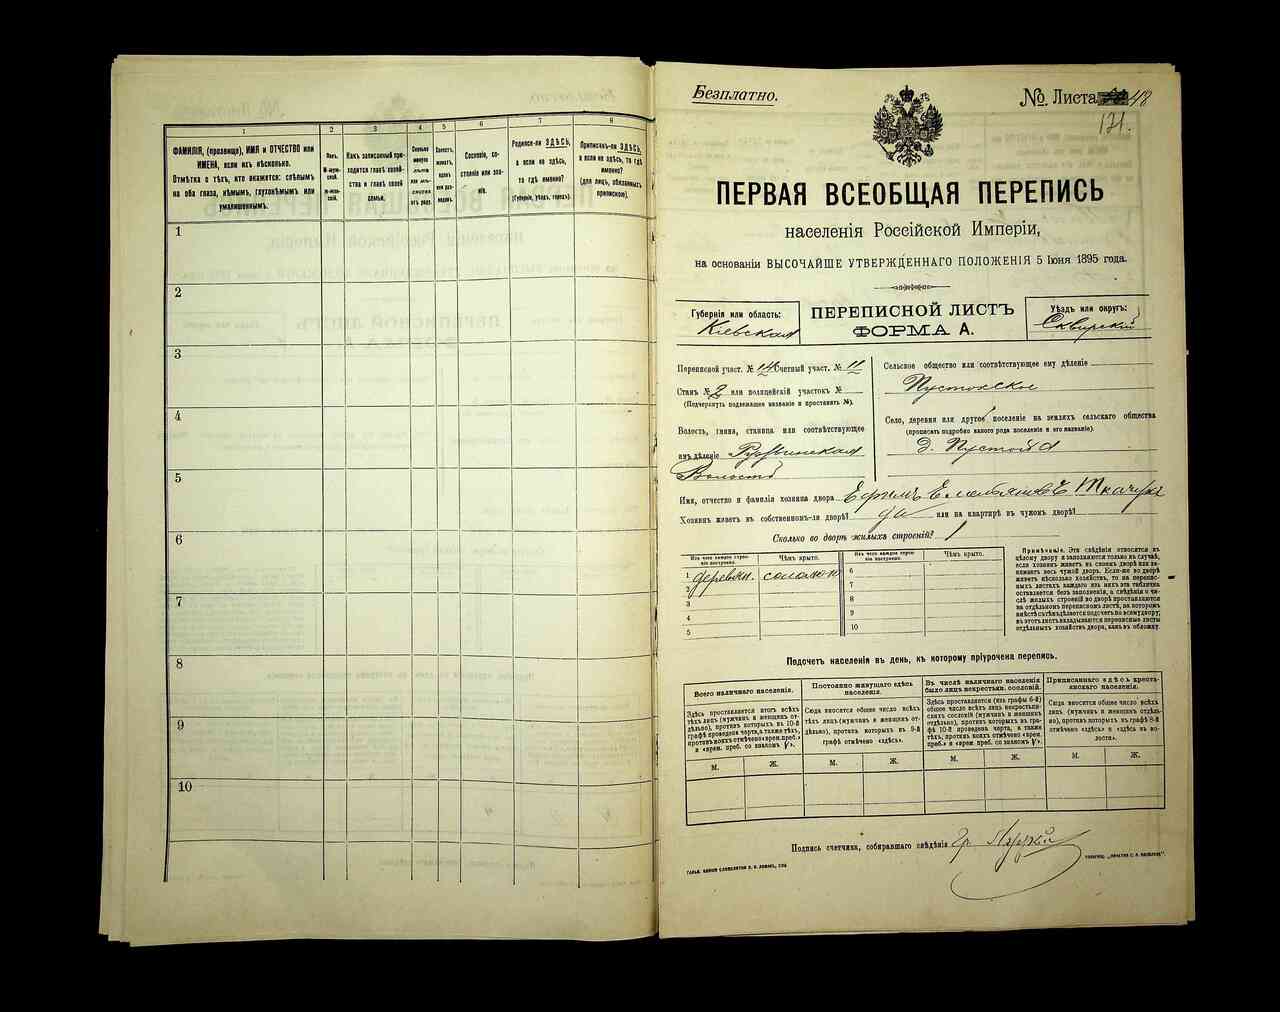 1 2 3 4 5 6 7 8
ФАМИЛІЯ, (прозвище), ИМЯ и ОТЧЕСТВО или
ИМЕНА, если ихъ нѣсколько.
Отмѣтка о тѣхъ, кто окажется: слѣпымъ
на оба глаза, нѣмымъ, глухонѣмымъ или
умалишеннымъ.
Какъ записанный при-
ходится главѣ хозяй-
ства и главѣ своей
семьи.
Сословіе, со-
стояніе или зва-
ніе.
Родился-ли ЗДѢСЬ,
а если не здѣсь,
то гдѣ именно?
(Губернія, уѣздъ, городъ).
Приписанъ-ли ЗДѢСЬ,
а если не здѣсь, то гдѣ
именно?
(для лицъ, обязанныхъ
припискою).
1
2
3
4
5
6
7
8
9
10
Безплатно.
№ Листа 48
121.
ПЕРВАЯ ВСЕОБЩАЯ ПЕРЕПИСЬ
населенія Россійской Имперіи,
на основаніи ВЫСОЧАЙШЕ УТВЕРЖДЕННАГО ПОЛОЖЕНІЯ 5 Іюня 1895 года.
Губернія или область:
Кіевская
ПЕРЕПИСНОЙ ЛИСТЪ
ФОРМА А.
Уѣздъ или округъ:
Сквирскій
Переписной участ. № 14 Счетный участ. № 11
Станъ № 2 или полицейскій участокъ №
(Подчеркнуть подлежащее названіе и проставить №).
Волость, гмина, станица или соотвѣтствующее
имъ дѣленіе
Волость
Сельское общество или соотвѣтствующее ему дѣленіе
Село, деревня или другое поселеніе на земляхъ сельскаго общества
(прописать подробно какого рода поселеніе и его названіе).
д. Пустоха
Имя, отчество и фамилія хозяина двора Ефимъ Ткачукъ
Хозяинъ живетъ въ собственномъ-ли дворѣ? да или на квартирѣ въ чужомъ дворѣ?
Сколько во дворѣ жилыхъ строеній? 1
Изъ чего каждое строе-
ніе построено.
Чѣмъ крыто.
Изъ чего каждое строе-
ніе построено.
Чѣмъ крыто.
1 деревян. солом
2
3
4
5
6
7
8
9
10
Примѣчаніе. Эти свѣдѣнія относятся къ
цѣлому двору и заполняются только въ случаѣ,
если хозяинъ живетъ въ своемъ дворѣ или за-
нимаетъ весь чужой дворъ. Если-же во дворѣ
живетъ нѣсколько хозяйствъ, то на перепис-
ныхъ листахъ каждаго изъ нихъ эта табличка
оставляется безъ заполненія, а свѣдѣнія о чи-
слѣ жилыхъ строеній во дворѣ проставляются
на отдѣльномъ переписномъ листѣ, на которомъ
вмѣстѣ съ тѣмъ дѣлается подсчетъ по всему двору;
въ этотъ листъ вкладываются переписные листы
отдѣльныхъ хозяйствъ двора, какъ въ обложку.
Подсчетъ населенія въ день, къ которому пріурочена перепись.
Всего наличнаго населенія.
Здѣсь проставляется итогъ всѣхъ
тѣхъ лицъ (мужчинъ и женщинъ от-
дѣльно), противъ которыхъ въ 10-й
графѣ проведена черта, а также тѣхъ,
противъ коихъ отмѣчено «врем. преб.»
и «врем. преб. со знакомъ V».
Постоянно живущаго здѣсь
населенія.
Сюда вносится общее число всѣхъ
тѣхъ лицъ (мужчинъ и женщинъ от-
дѣльно), противъ которыхъ въ 9-й
графѣ отмѣчено «здѣсь».
Въ числѣ наличнаго населенія
было лицъ некрестьян. сословій.
Здѣсь проставляется (изъ графы 6-й)
общее число всѣхъ лицъ некрестьян-
скихъ сословій (мужчинъ и женщинъ
отдѣльно), противъ которыхъ въ гра-
фѣ 10-й проведена черта, а также
тѣхъ, противъ коихъ отмѣчено «врем.
преб.» и «врем. преб. со знакомъ V».
Приписаннаго здѣсь кресть-
янскаго населенія.
Сюда вносится общее число всѣхъ
лицъ (мужчинъ и женщинъ отдѣль-
но), противъ которыхъ въ графѣ 8-й
отмѣчено «здѣсь» и «здѣсь въ во-
лости».
М. Ж. М. Ж. М. Ж. М. Ж.
Подпись счетчика, собиравшаго свѣдѣнія